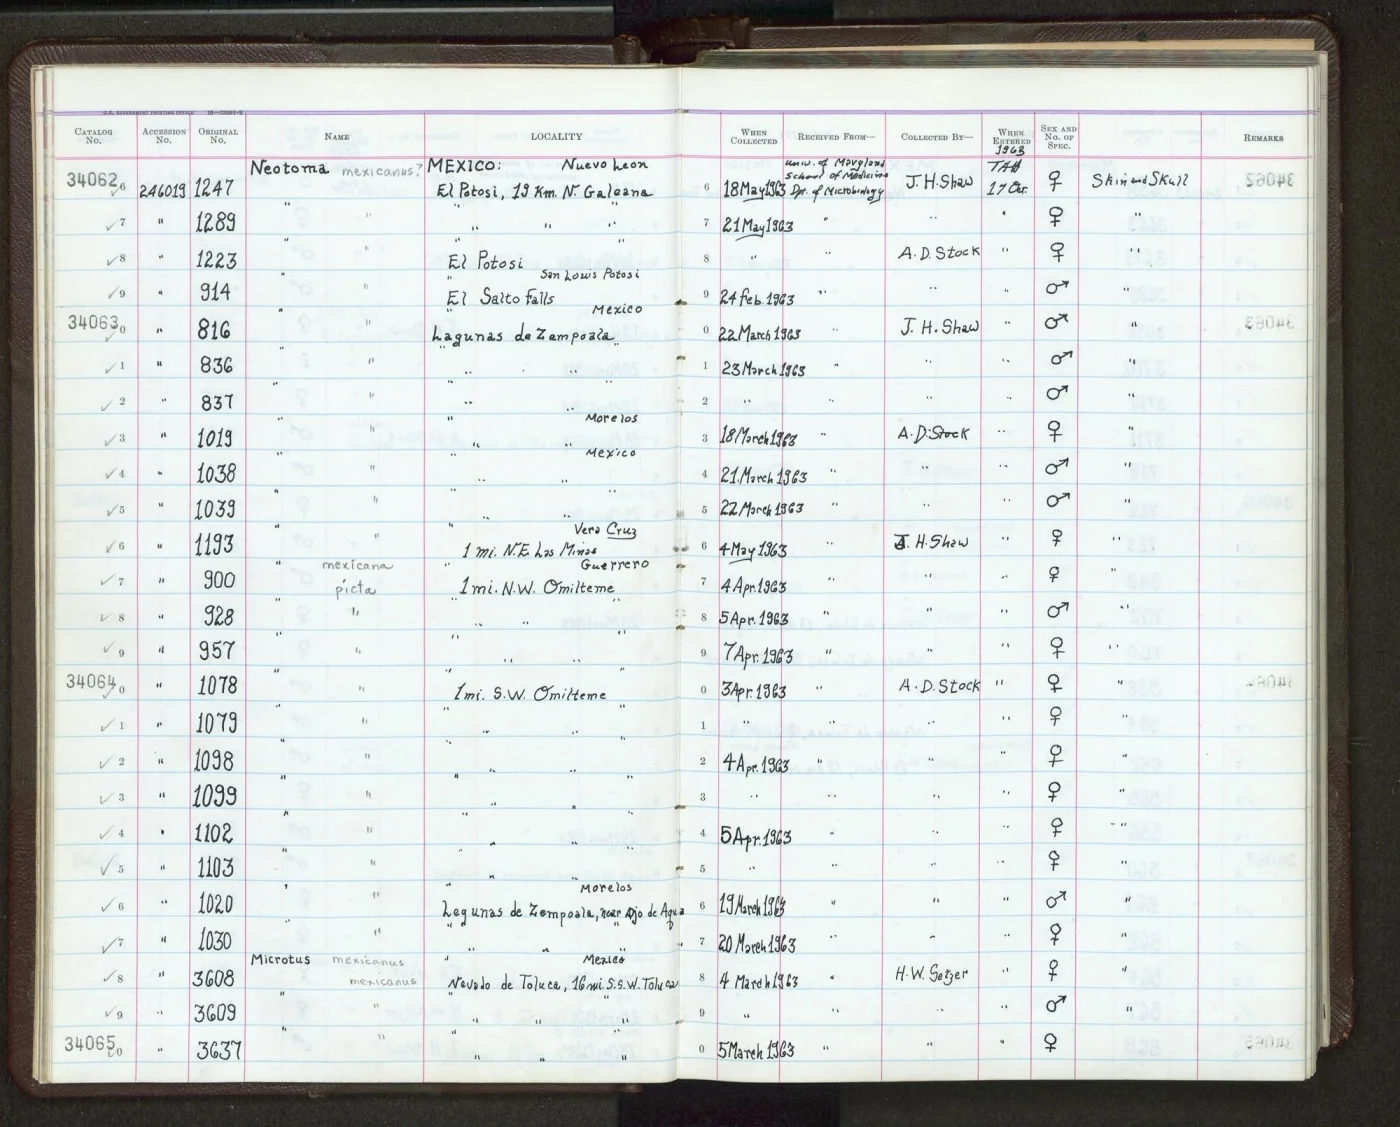 U.S. GOVERNMENT PRINTING OFFICE
CATALOG No. ACCESSION No. ORIGINAL No. NAME LOCALITY WHEN COLLECTED RECEIVED FROM— COLLECTED BY— WHEN ENTERED SEX AND No. OF SPEC. REMARKS
1963
Neotoma mexicanus? MEXICO: Nuevo Leon Univ. of Maryland School of Medicine TAH
34062 6 246019 1247 El Potosi, 19 Km. N. Galeana 6 18 May 1963 Dpt. of Microbiology J. H. Shaw 17 Oct. ♀ Skin and Skull 34062
✓ 7 " 1289 " " " " " 7 21 May 1963 " " " ♀ "
✓ 8 " 1223 " " El Potosi " 8 " " A. D. Stock " ♀ "
San Louis Potosi
✓ 9 " 914 " " El Salto Falls 9 24 Feb. 1963 " " " ♂ "
Mexico
34063 0 ✓ " 816 " " Lagunas de Zempoala 0 22 March 1963 " J. H. Shaw " ♂ " 34063
✓ 1 " 836 " " " " " 1 23 March 1963 " " " ♂ "
✓ 2 " 837 " " " " 2 " " " " ♂ "
Morelos
✓ 3 " 1019 " " " " 3 18 March 1963 " A. D. Stock " ♀ "
Mexico
✓ 4 " 1038 " " " " 4 21 March 1963 " " " ♂ "
✓ 5 " 1039 " " " " " 5 22 March 1963 " " " ♂ "
Vera Cruz
✓ 6 " 1193 " " 1 mi. N.E. Las Minas 6 4 May 1963 " J. H. Shaw " ♀ "
mexicana Guerrero
✓ 7 " 900 " picta 1 mi. N.W. Omilteme 7 4 Apr. 1963 " " " ♀ "
✓ 8 " 928 " " " " " 8 5 Apr. 1963 " " " ♂ "
✓ 9 " 957 " " " " " 9 7 Apr. 1963 " " " ♀ "
34064 0 " 1078 " " 1 mi. S.W. Omilteme 0 3 Apr. 1963 " A. D. Stock " ♀ " 34064
✓ 1 " 1079 " " " " " 1 " " " " ♀ "
✓ 2 " 1098 " " " " " 2 4 Apr. 1963 " " " ♀ "
✓ 3 " 1099 " " " " " 3 " " " " ♀ "
✓ 4 " 1102 " " " " " 4 5 Apr. 1963 " " " ♀ "
✓ 5 " 1103 " " " " " 5 " " " " ♀ "
Morelos
✓ 6 " 1020 " " Lagunas de Zempoala, near Ojo de Agua 6 19 March 1963 " " " ♂ "
✓ 7 " 1030 " " " " " 7 20 March 1963 " " " ♀ "
Microtus mexicanus Mexico
✓ 8 " 3608 mexicanus Nevado de Toluca, 16 mi. S.S.W. Toluca 8 4 March 1963 " H. W. Setzer " ♀ "
✓ 9 " 3609 " " " " " 9 " " " " ♂ "
34065 0 " 3637 " " " " " 0 5 March 1963 " " " ♀ 34065